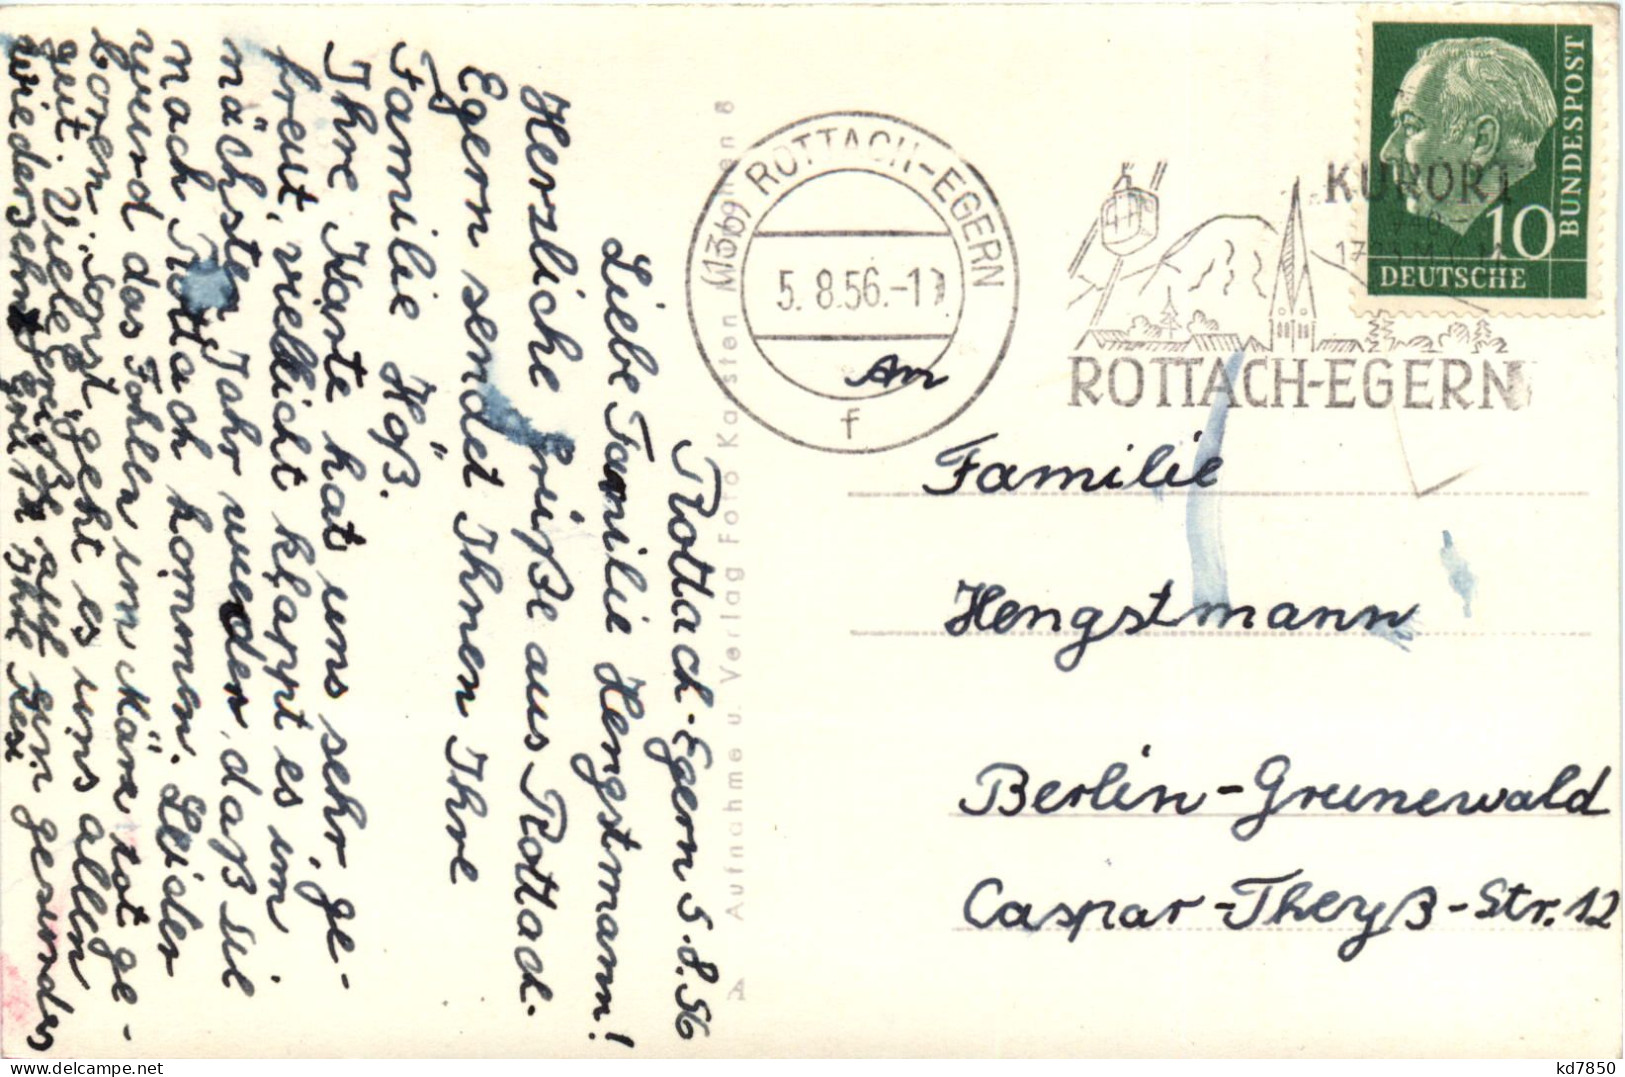 Rottach-Egern 5.8.56
Liebe Familie Hengstmann!
Herzliche Grüße aus Rottach-
Egern sendet Ihnen Ihre
Familie Höß.
Ihre Karte hat uns sehr ge-
freut, vielleicht klappt es im
nächsten Jahr wieder, daß sie
nach Rottach kommen. Leider
wurd das Fohlen im März tot ge-
boren. Sonst geht es uns allen
gut. Viele Grüße auf ein gesundes
Wiedersehn grüßt Ihre
Aufnahme u. Verlag Foto Kasten München 8
A
(13b) ROTTACH-EGERN
5.8.56.-1
f
KURORT
ROTTACH-EGERN
DEUTSCHE
BUNDESPOST
10
An
Familie
Hengstmann
Berlin-Grunewald
Caspar-Theyß-Str. 12
kd7850